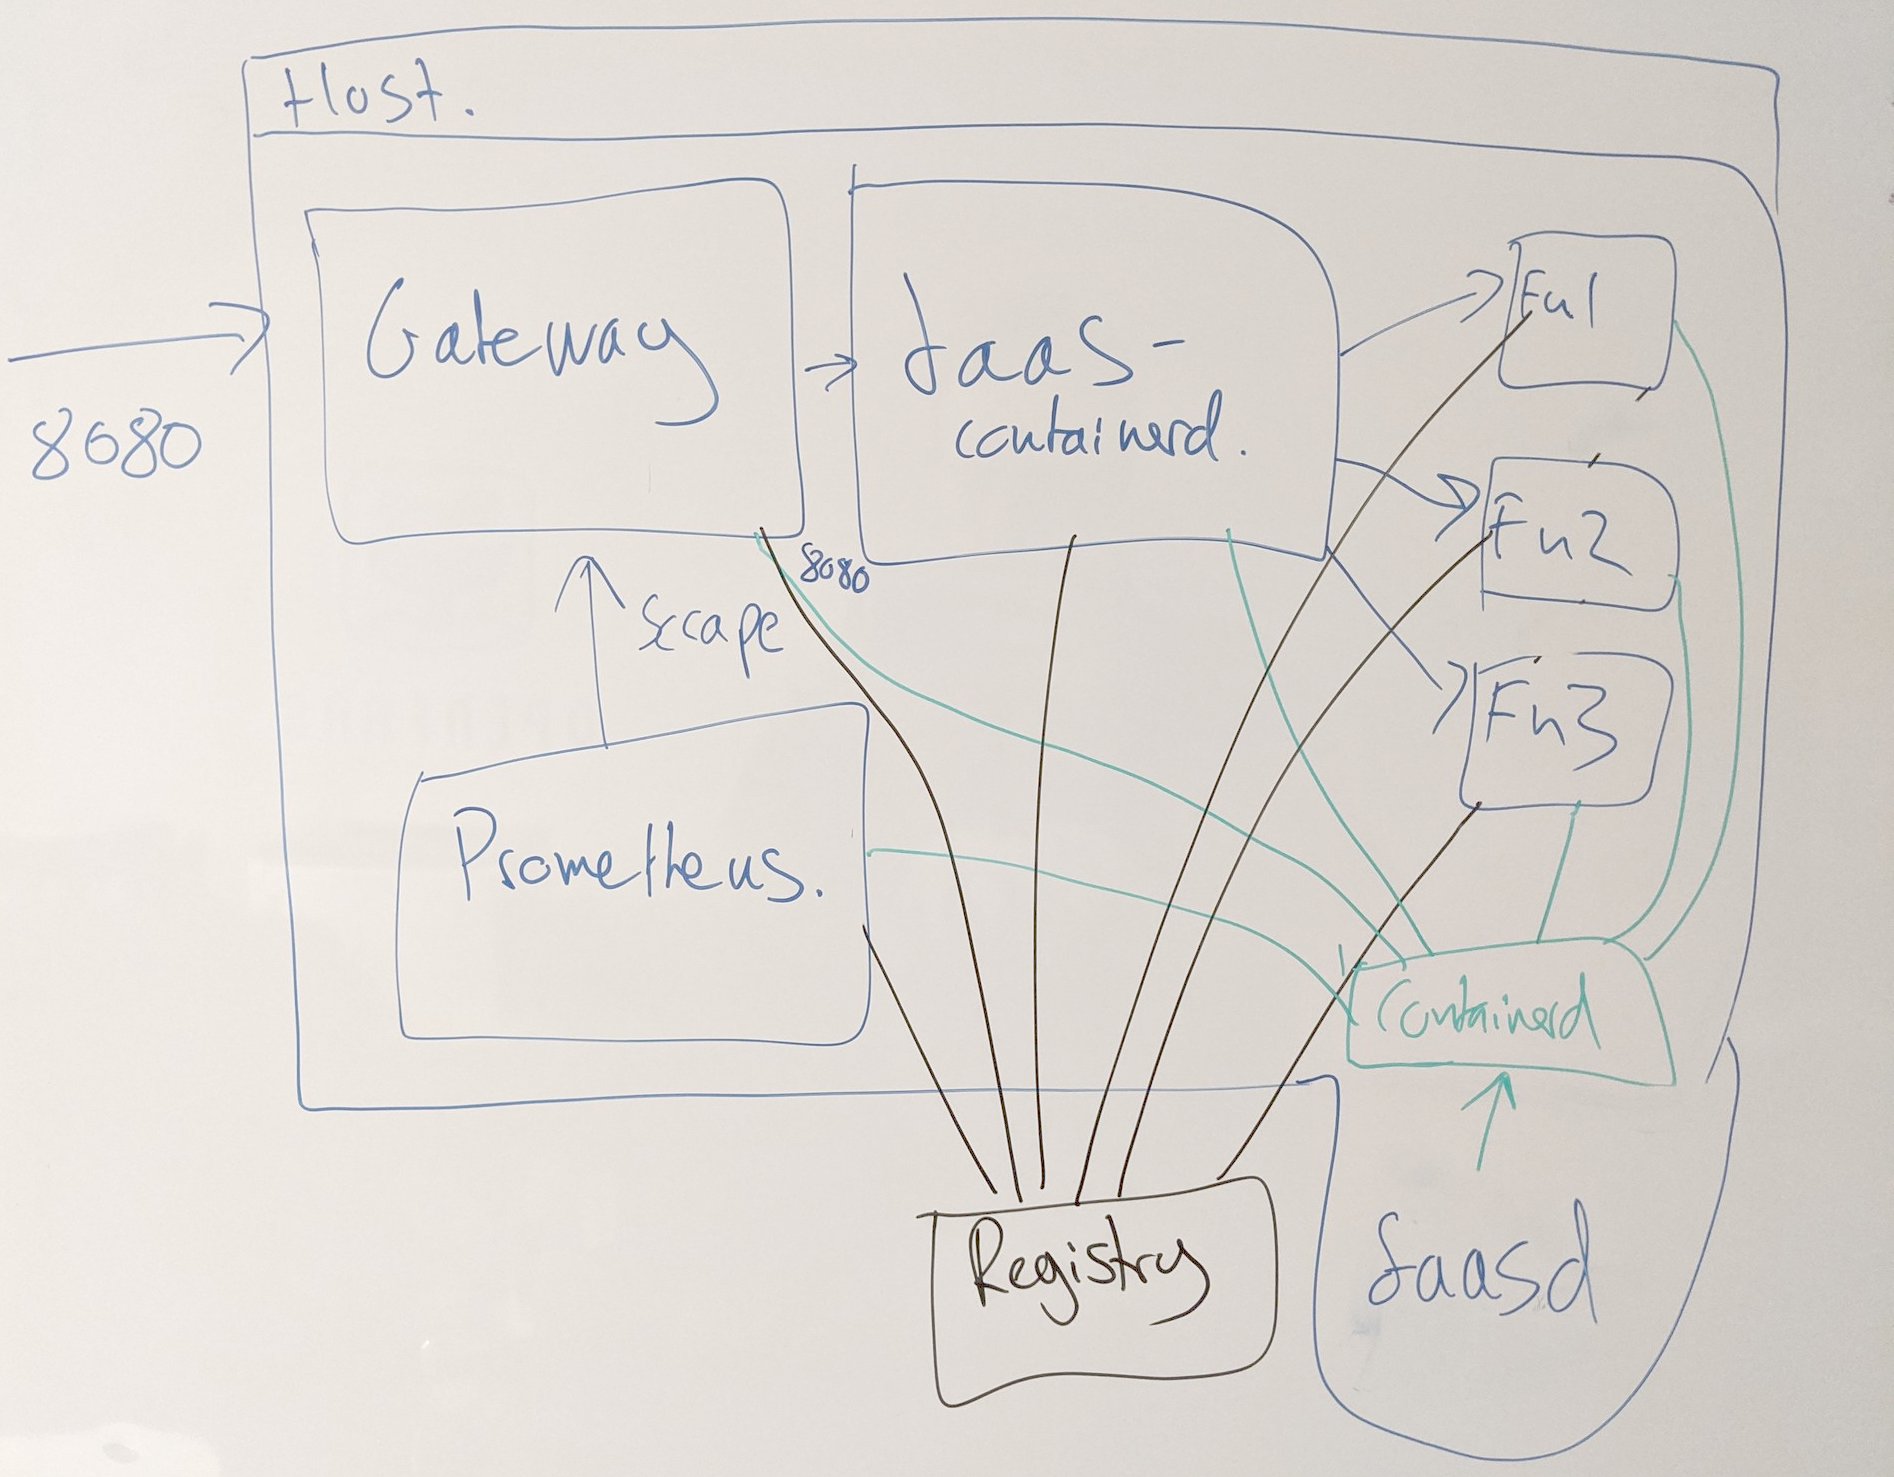 Host.
8080
Gateway
faas-
containerd.
Fn1
Fn2
Fn3
8080
Scrape
Prometheus.
Containerd
Registry
faasd